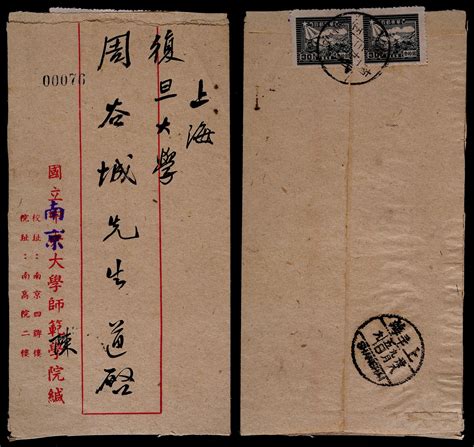 上海
復旦大學
周谷城先生道啓
00076
國立南京大學師範學院緘
陳
校址：南京四牌樓
院址：南高院二樓
上海
SHANGHAI